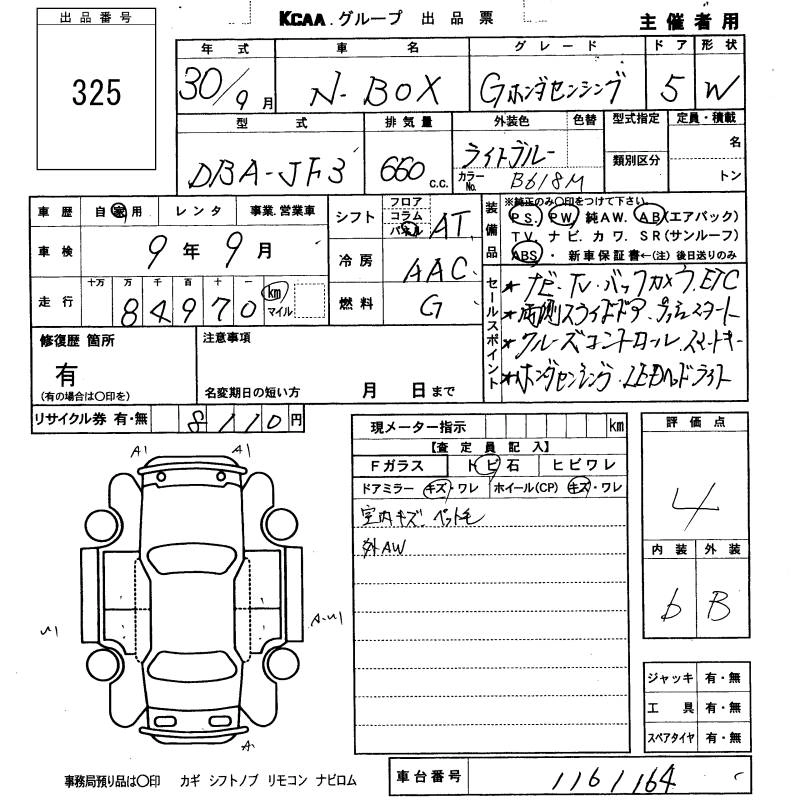 KCAA.グループ 出品票
主催者用
出品番号
325
年式 車名 グレード ドア 形状
30/9月 N-BOX Gホンダセンシング 5 W
型式 排気量 外装色 色替 型式指定 定員・積載
DBA-JF3 660 c.c. ライトブルー 名
カラーNo. B618M 類別区分 トン
車歴 自家用 レンタ 事業.営業車
車検 9年9月
走行 十万 万 千 百 十 一
84970 km マイル
シフト フロア コラム パネル AT
冷房 AAC
燃料 G
装備品 ※純正のみ○印をつけて下さい。
P.S. PW 純AW. AB(エアバック)
TV. ナビ. カワ. SR(サンルーフ)
ABS・ 新車保証書←(注) 後日送りのみ
セールスポイント
* ナビ・TV・バックカメラ.ETC
* 両側スライドドア.プッシュスタート
* クルーズコントロール.スマートキー
* ホンダセンシング.LEDヘッドライト
修復歴 箇所
有
(有の場合は○印を)
注意事項
名変期日の短い方 月 日まで
リサイクル券 有・無 8110円
現メーター指示 km
【査定員記入】
Fガラス トビ石 ヒビワレ
ドアミラー キズ・ワレ ホイール(CP) キズ・ワレ
室内キズ. ペット毛
外AW
評価点
4
内装 外装
b B
A1 A1
A1
ジャッキ 有・無
工具 有・無
スペアタイヤ 有・無
事務局預り品は○印 カギ シフトノブ リモコン ナビロム
車台番号 1161164